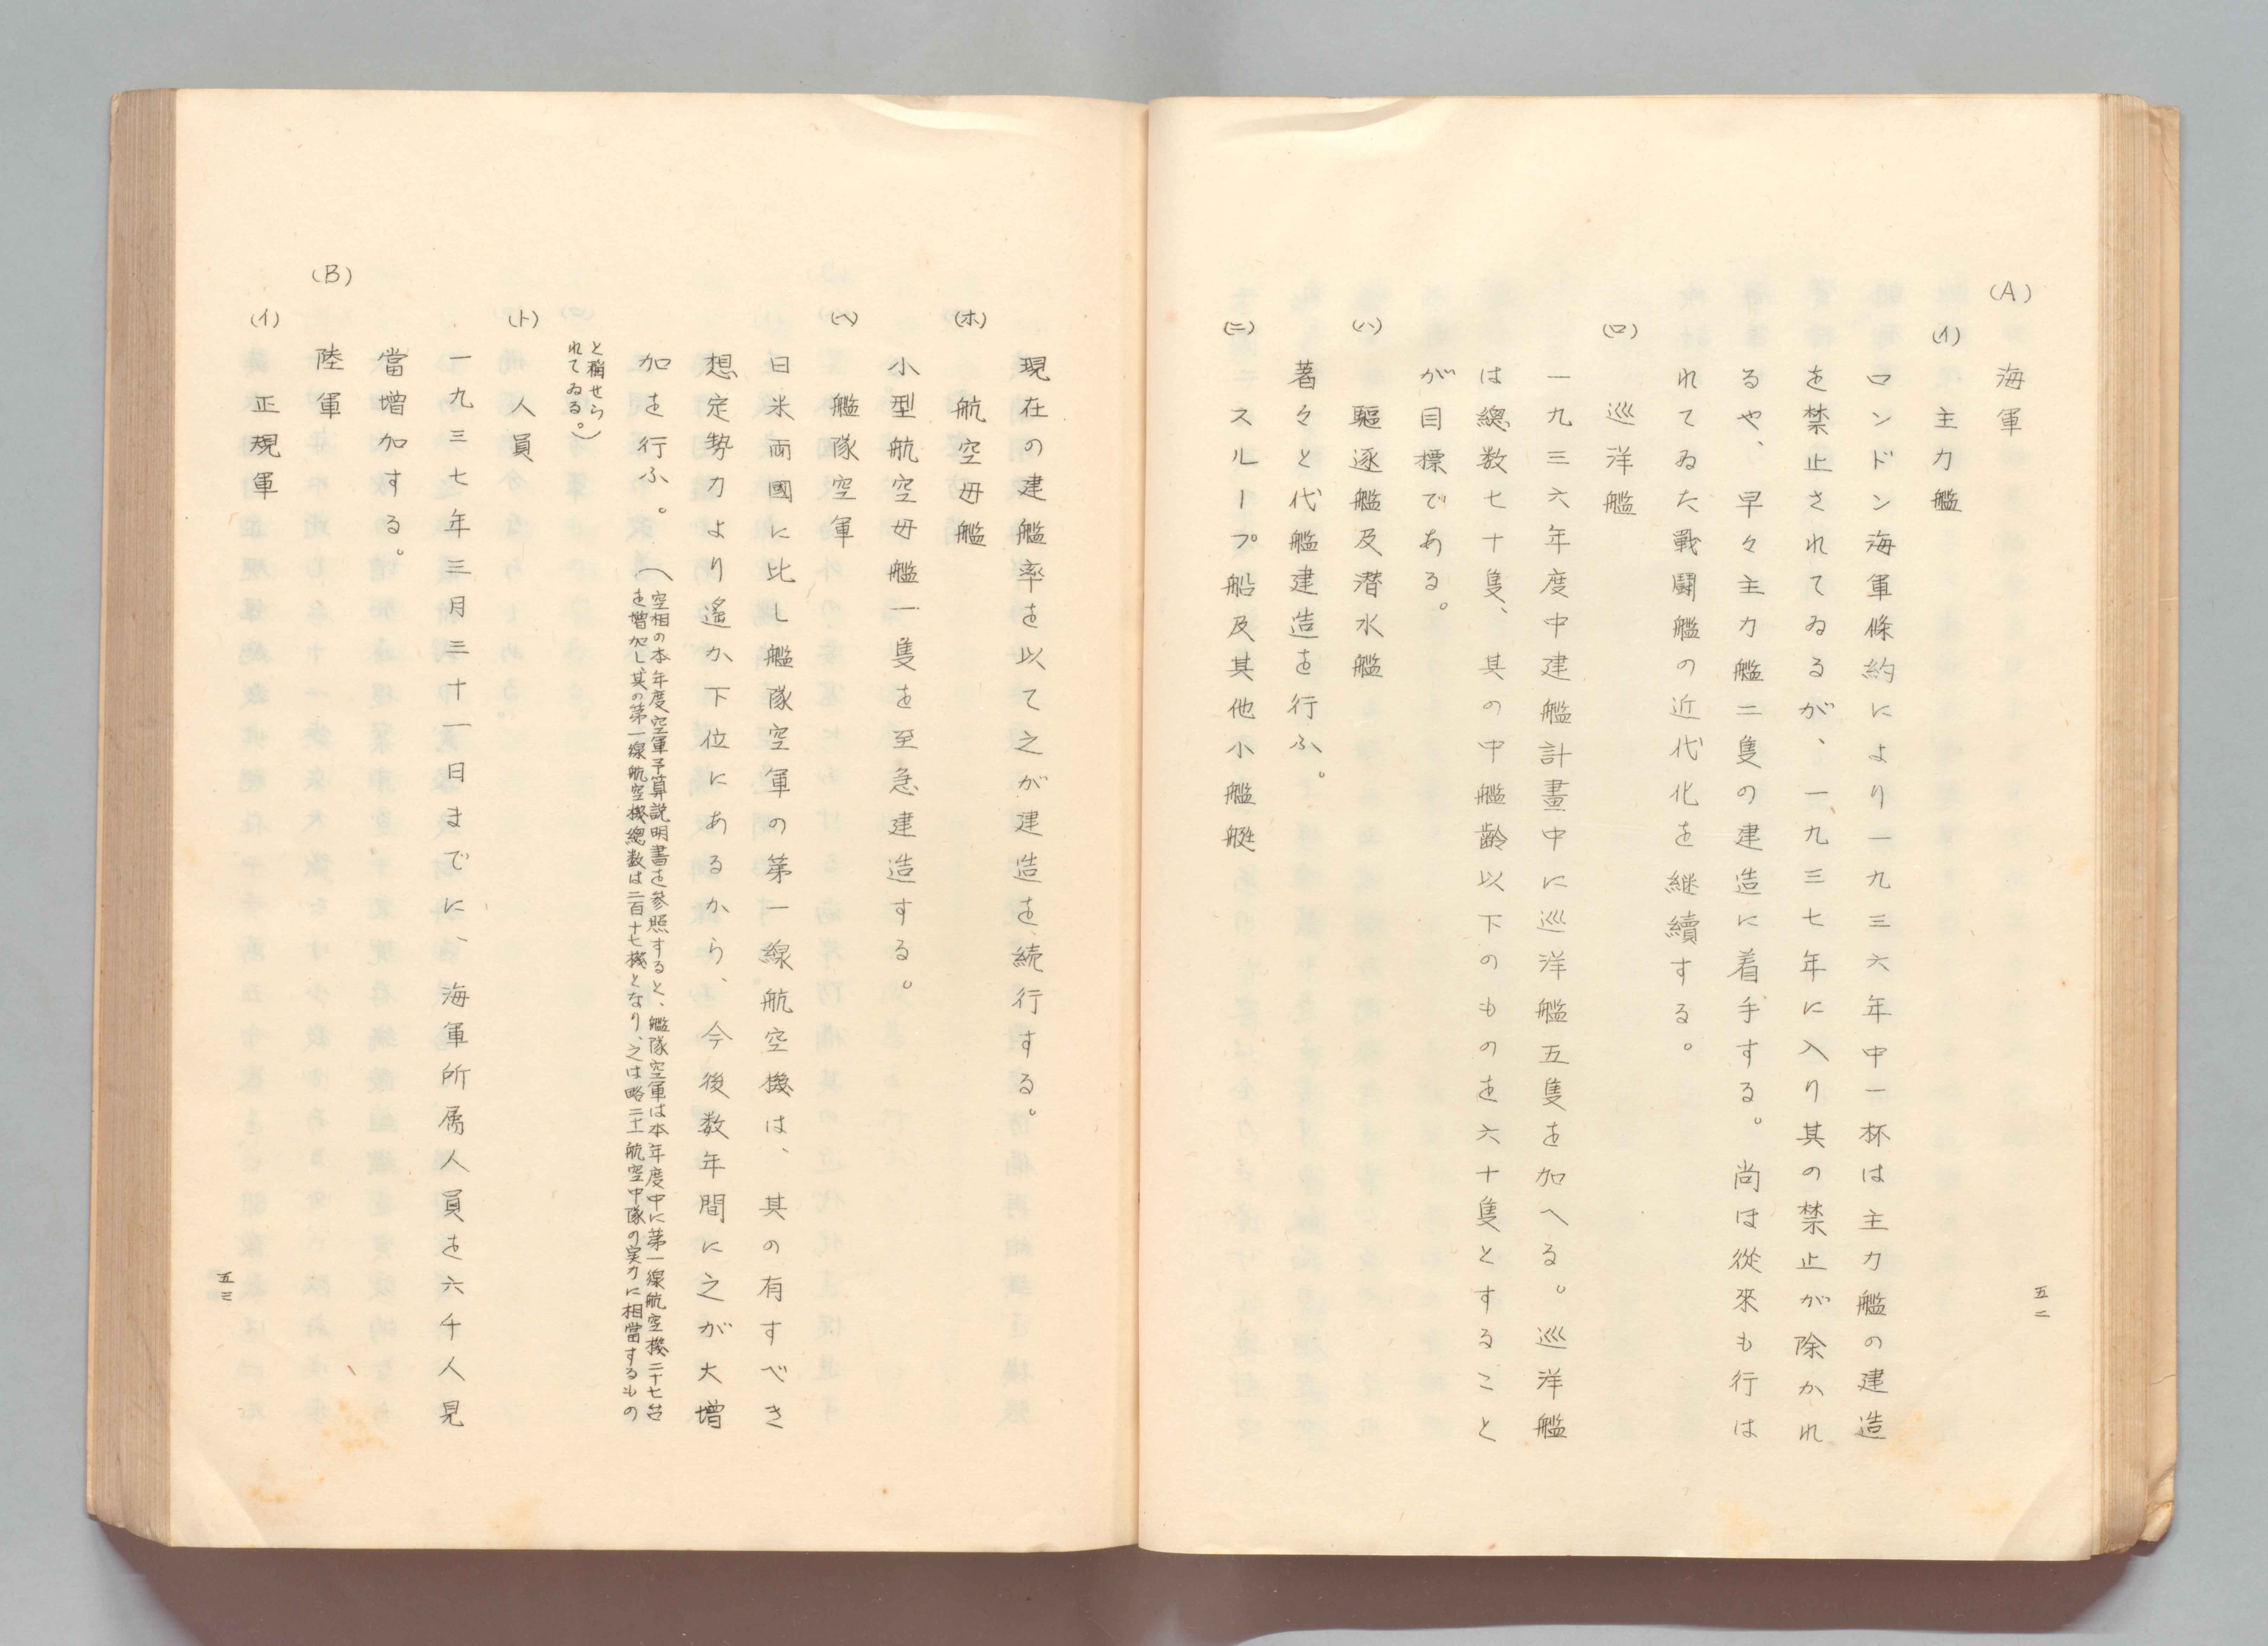 (A) 海軍
(イ) 主力艦
ロンドン海軍條約により一九三六年中一杯は主力艦の建造
を禁止されてゐるが、一九三七年に入り其の禁止が除かれ
るや、早々主力艦二隻の建造に着手する。尚ほ從來も行は
れてゐた戰鬪艦の近代化を継續する。
(ロ) 巡洋艦
一九三六年度中建艦計畫中に巡洋艦五隻を加へる。巡洋艦
は總数七十隻、其の中艦齡以下のものを六十隻とすること
が目標である。
(ハ) 驅逐艦及潜水艦
著々と代艦建造を行ふ。
(ニ) スループ船及其他小艦艇
五二
現在の建艦率を以て之が建造を続行する。
(ホ) 航空母艦
小型航空母艦一隻を至急建造する。
(ヘ) 艦隊空軍
日米両國に比し艦隊空軍の第一線航空機は、其の有すべき
想定勢力より遙か下位にあるから、今後数年間に之が大増
加を行ふ。(空相の本年度空軍予算説明書を参照すると、艦隊空軍は本年度中に第一線航空機二十七台
を増加し、其の第一線航空機總数は二百十七機となり、之は略二十一航空中隊の実力に相當するもの
と稱せら
れてゐる。)
(ト) 人員
一九三七年三月三十一日までに、海軍所属人員を六千人見
當増加する。
(B) 陸軍
(イ) 正規軍
五三